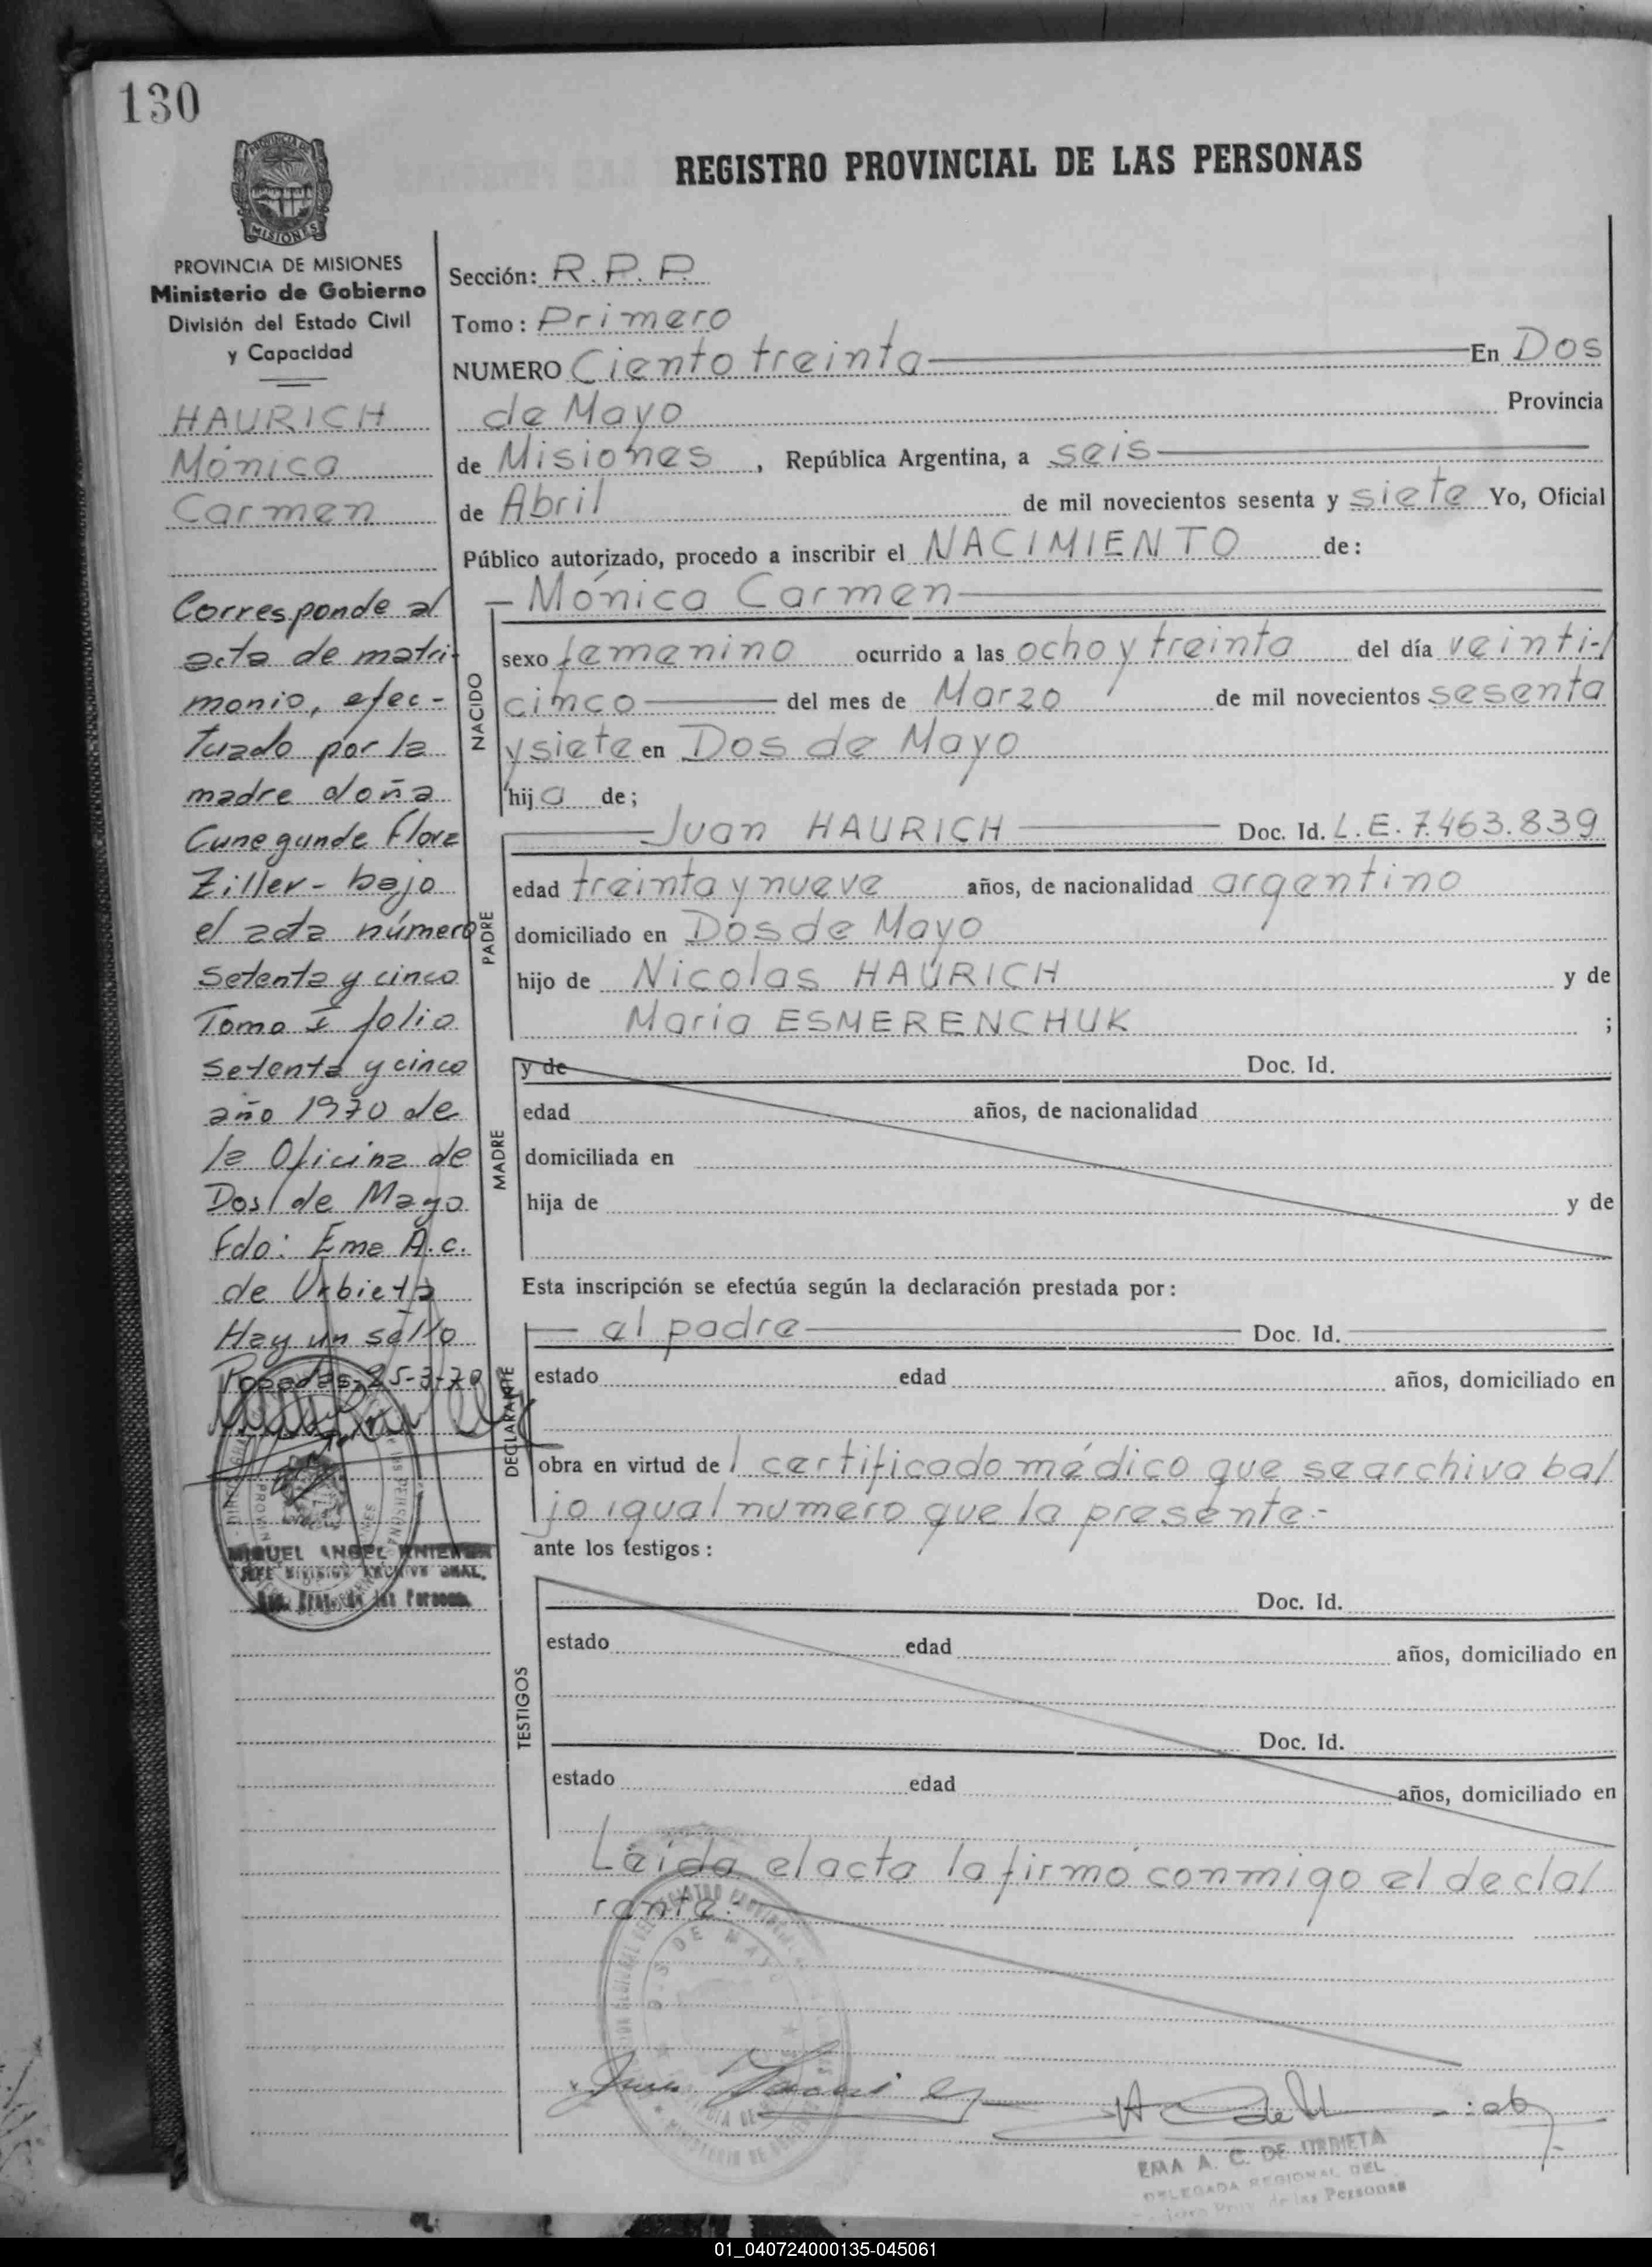 130
REGISTRO PROVINCIAL DE LAS PERSONAS
PROVINCIA DE
MISIONES
PROVINCIA DE MISIONES
Ministerio de Gobierno
División del Estado Civil
y Capacidad
HAURICH
Mónica
Carmen
Corresponde al
acta de matri-
monio, efec-
tuado por la
madre doña
Cunegunde Flora
Ziller - bajo
el acta número
setenta y cinco
Tomo I folio
setenta y cinco
año 1970 de
la Oficina de
Dos de Mayo
Fdo: Eme A.c.
de Urbieta
Hay un sello
Posadas, 25-3-70
MIGUEL ANGEL
JEFE DIVISION ARCHIVO GRAL.
de las Personas
Sección: R.P.P.
Tomo: Primero
NUMERO Ciento treinta En Dos
de Mayo Provincia
de Misiones, República Argentina, a seis
de Abril de mil novecientos sesenta y siete Yo, Oficial
Público autorizado, procedo a inscribir el NACIMIENTO de:
- Mónica Carmen
NACIDO
sexo femenino ocurrido a las ocho y treinta del día veinti-/
cinco del mes de Marzo de mil novecientos sesenta
y siete en Dos de Mayo
hija de;
PADRE
Juan HAURICH Doc. Id. L.E. 7.463.839
edad treinta y nueve años, de nacionalidad argentino
domiciliado en Dos de Mayo
hijo de Nicolas HAURICH y de
Maria ESMERENCHUK ;
MADRE
y de Doc. Id.
edad años, de nacionalidad
domiciliada en
hija de y de
Esta inscripción se efectúa según la declaración prestada por:
DECLARANTE
el padre Doc. Id.
estado edad años, domiciliado en
obra en virtud del certificado médico que se archiva ba/
jo igual numero que la presente.-
ante los testigos:
TESTIGOS
Doc. Id.
estado edad años, domiciliado en
Doc. Id.
estado edad años, domiciliado en
Leída el acta la firmó conmigo el decla/
rante.
DOS DE MAYO
EMA A. C. DE URBIETA
DELEGADA REGIONAL DEL
Registro Prov. de las Personas
01_040724000135-045061